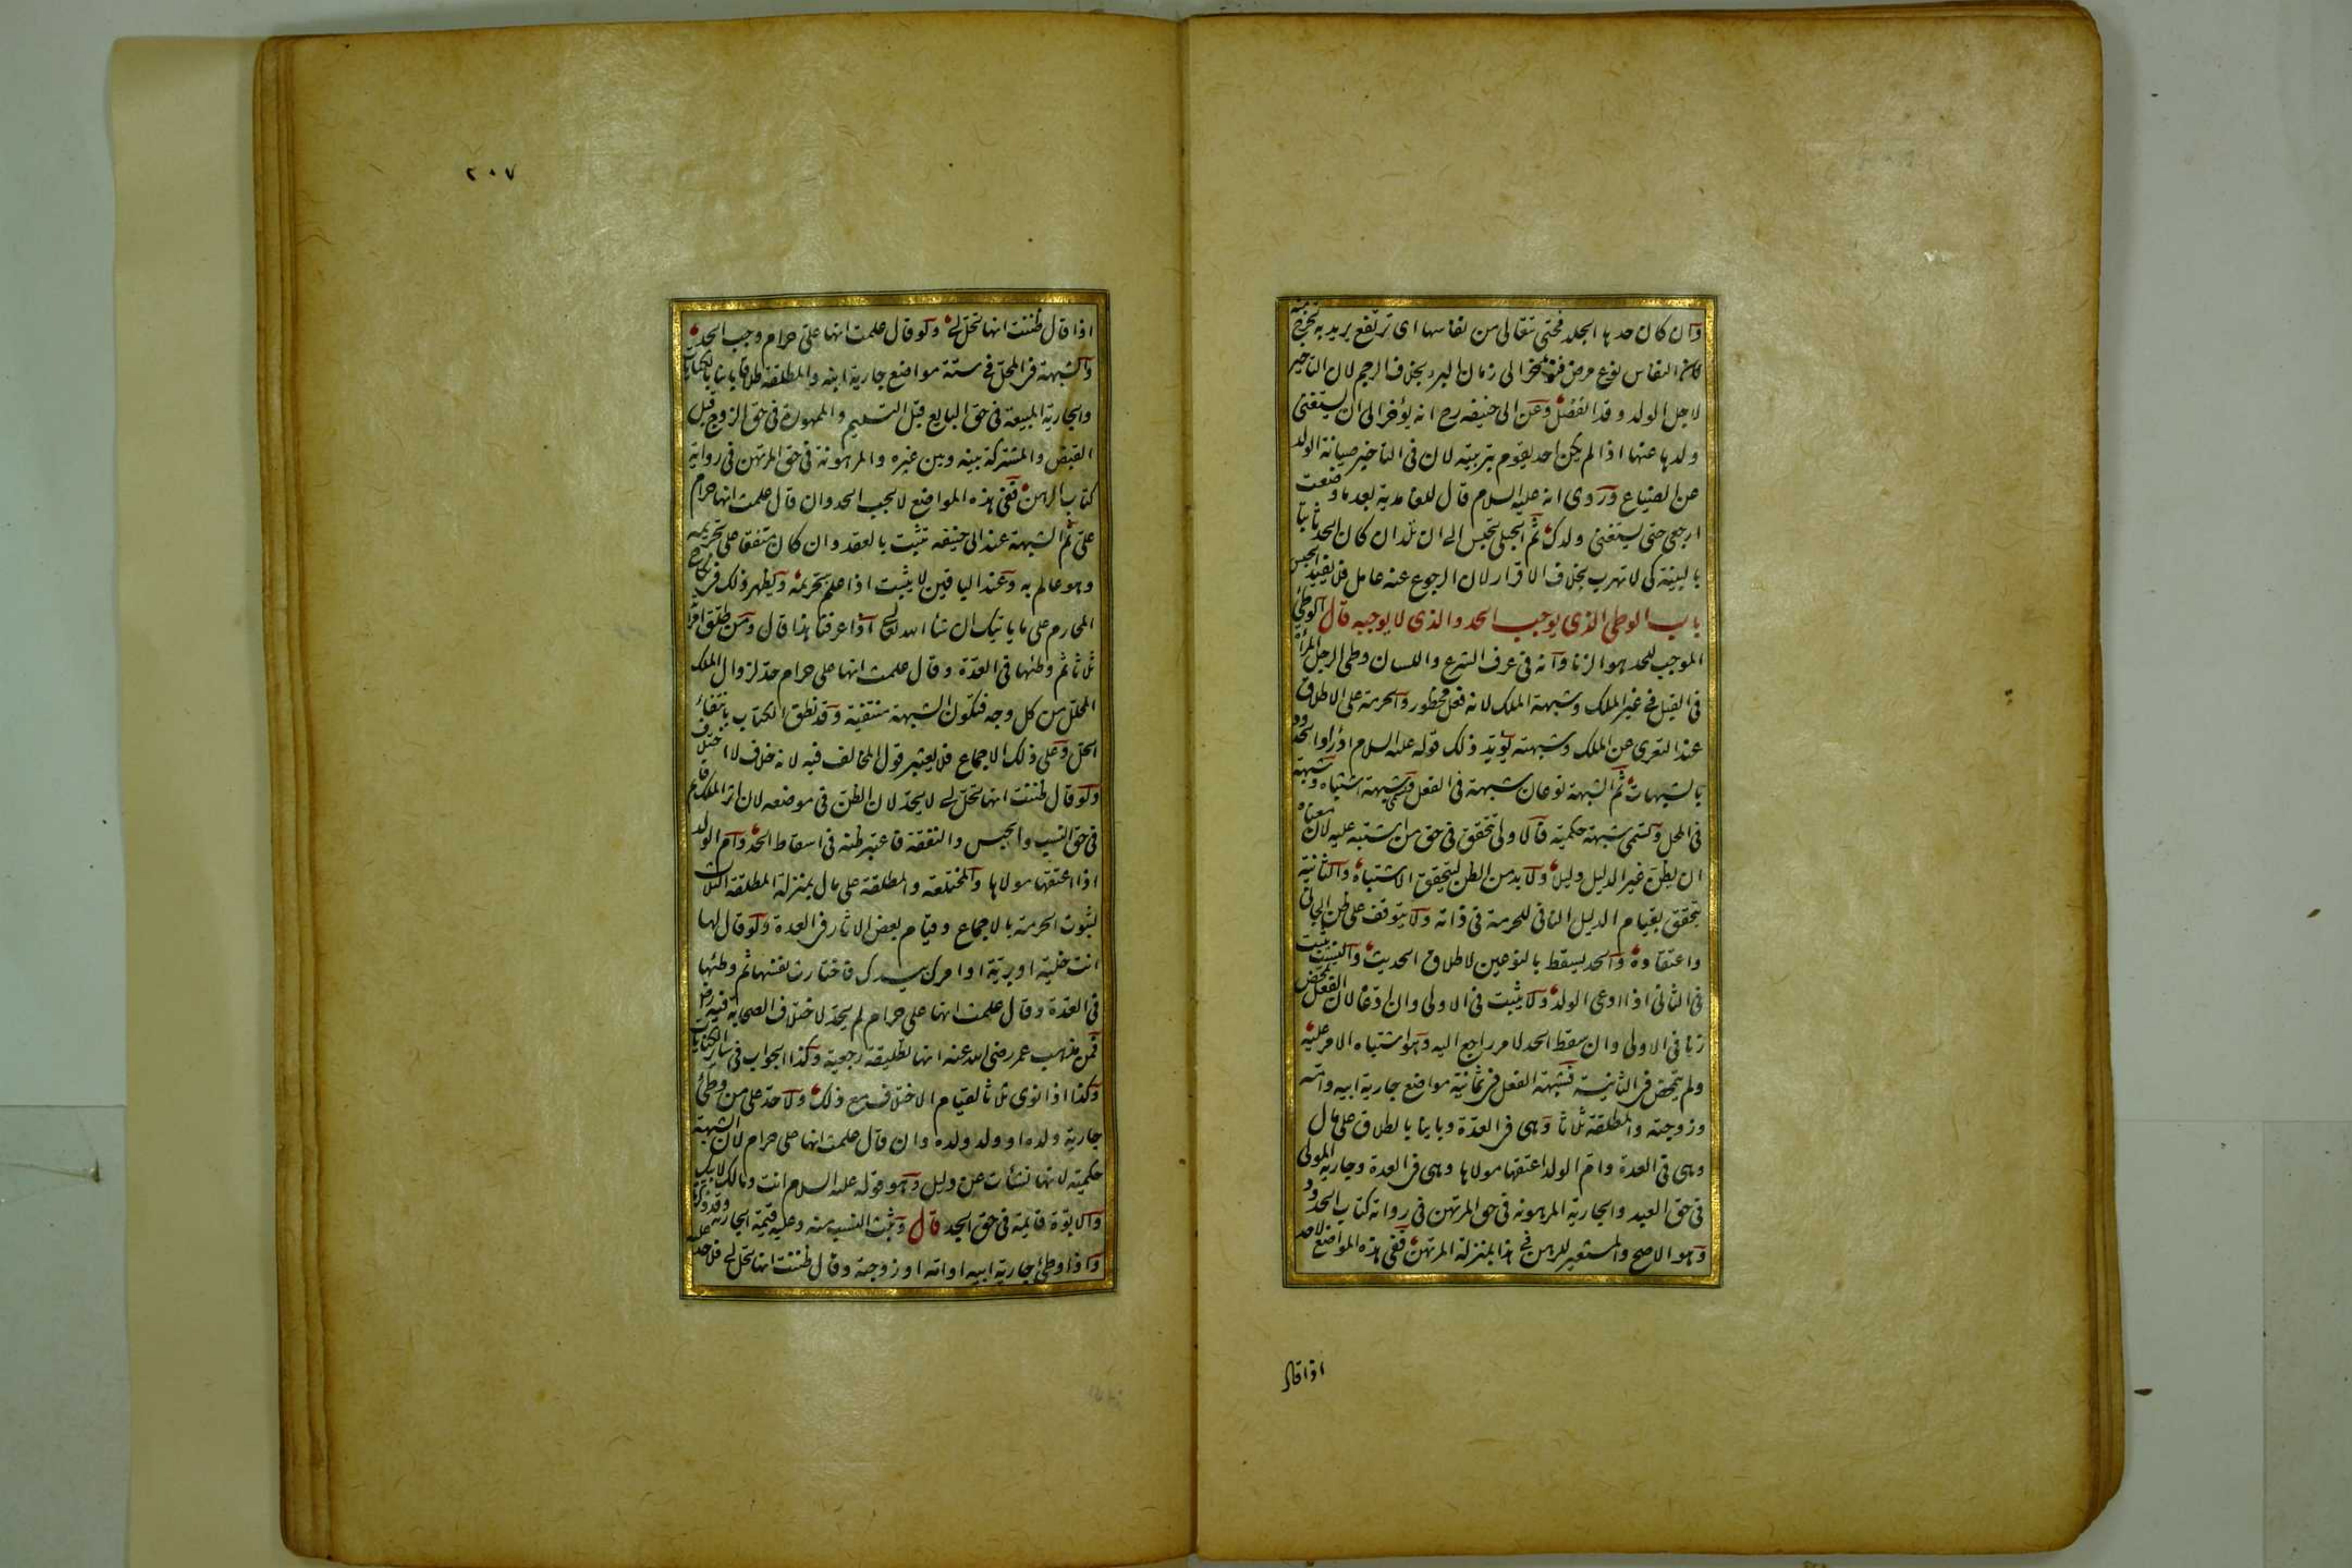 وان كان حدها الجلد فحتى تتعالى من نفاسها اى ترتفع يريد به تخرج منه
لان النفاس نوع مرض فيؤخر الى زمان البرء بخلاف الرجم لان التأخير
لاجل الولد وقد انفصل وعن ابى حنيفه رح انه يؤخر الى ان يستغنى
ولدها عنها اذا لم يكن احد يقوم بتربيته لان فى التاخير صيانة الولد
عن الضياع وروى انه عليه السلام قال للغامدية بعد ما وضعت
ارجعى حتى يستغنى ولدك ثم الحبلى تحبس الى ان تلد ان كان الحد ثابتا
بالبينة كى لا تهرب بخلاف الاقرار لان الرجوع عنه عامل فلا يفيد الحبس
باب الوطئ الذى يوجب الحد والذى لا يوجبه قال الوطئ
الموجب للحد هو الزنا وانه فى عرف الشرع واللسان وطئ الرجل المرأة
فى القبل فى غير الملك وشبهة الملك لانه فعل محظور والحرمة على الاطلاق
عند التعرى عن الملك وشبهته يؤيد ذلك قوله عليه السلام ادرأوا الحدود
بالشبهات ثم الشبهة نوعان شبهة فى الفعل وتسمى شبهة اشتباه وشبهة
فى المحل وتسمى شبهة حكمية فالاولى تتحقق فى حق من اشتبه عليه لان معناه
ان يظن غير الدليل دليلا ولا بد من الظن ليتحقق الاشتباه والثانية
تتحقق بقيام الدليل النافى للحرمة فى ذاته ولا يتوقف على ظن الجانى
واعتقاده والحد يسقط بالنوعين لاطلاق الحديث والنسب يثبت
فى الثانى اذا ادعى الولد ولا يثبت فى الاولى وان ادعاه لان الفعل تمحض
زنا فى الاولى وان سقط الحد لامر راجع اليه وهو اشتباه الامر عليه
ولم يتمحض فى الثانية فشبهة الفعل فى ثمانية مواضع جارية ابيه وامه
وزوجته والمطلقة ثلاثا وهى فى العدة وباينا بالطلاق على مال
وهى فى العدة وام الولد اعتقها مولاها وهى فى العدة وجارية المولى
فى حق العبد والجارية المرهونه فى حق المرتهن فى رواية كتاب الحدود
وهو الاصح والمستعير للرهن فى هذا بمنزلة المرتهن ففى هذه المواضع لا حد
اذا قال
٢٠٧
اذا قال ظننت انها تحل لى ولو قال علمت انها على حرام وجب الحد
والشبهة فى المحل فى ستة مواضع جارية ابنه والمطلقة طلاقا باينا بالكنايات
والجارية المبيعة فى حق البايع قبل التسليم والممهورة فى حق الزوج قبل
القبض والمشتركة بينه وبين غيره والمرهونة فى حق المرتهن فى رواية
كتاب الرهن ففى هذه المواضع لا يجب الحد وان قال علمت انها حرام
على ثم الشبهة عند ابى حنيفه تثبت بالعقد وان كان متفقا على تحريمه
وهو عالم به وعند الباقين لا يثبت اذا علم بتحريمه ويظهر ذلك فى نكاح
المحارم على ما ياتيك ان شاء الله تعالى اذا عرفنا هذا قال ومن طلق امرأته
ثلاثا ثم وطئها فى العدة وقال علمت انها على حرام حد لزوال الملك
المحلل من كل وجه فتكون الشبهة منتفية وقد نطق الكتاب بانتفاء
الحل وعلى ذلك الاجماع فلا يعتبر قول المخالف فيه لانه خلاف لا اختلاف
ولو قال ظننت انها تحل لى لا يحد لان الظن فى موضعه لان اثر الملك قايم
فى حق النسب والحبس والنفقة فاعتبر ظنه فى اسقاط الحد وام الولد
اذا اعتقها مولاها والمختلعة والمطلقة على مال بمنزلة المطلقة الثلاث
لثبوت الحرمة بالاجماع وقيام بعض الاثار فى العدة ولو قال لها
انت خلية او برية او امرك بيدك فاختارت نفسها ثم وطئها
فى العدة وقال علمت انها على حرام لم يحد لاختلاف الصحابة فيه رض
فمن مذهب عمر رضى الله عنه انها تطليقة رجعية وكذا الجواب فى ساير الكنايات
وكذا اذا نوى ثلاثا لقيام الاختلاف مع ذلك ولا حد على من وطئ
جارية ولده او ولد ولده وان قال علمت انها على حرام لان الشبهة
حكمية لانها نشأت عن دليل وهو قوله عليه السلام انت ومالك لابيك
والابوة قايمة فى حق الجد قال وثبت النسب منه وعليه قيمة الجارية وقد ذكرناه
واذا وطئ جارية ابيه او امه او زوجته وقال ظننت انها تحل لى فلا حد عليه